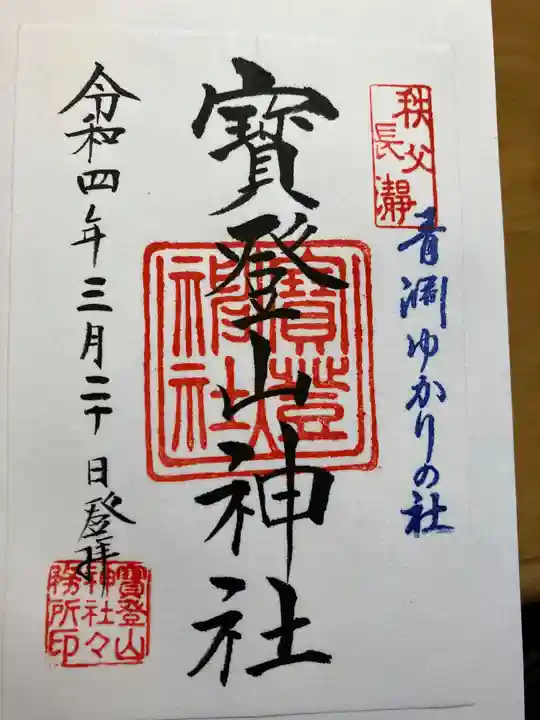 秩父
長瀞
青淵ゆかりの社
寳登山神社
寳登
神社
令和四年三月二十日登拝
寳登山
神社々
務所印